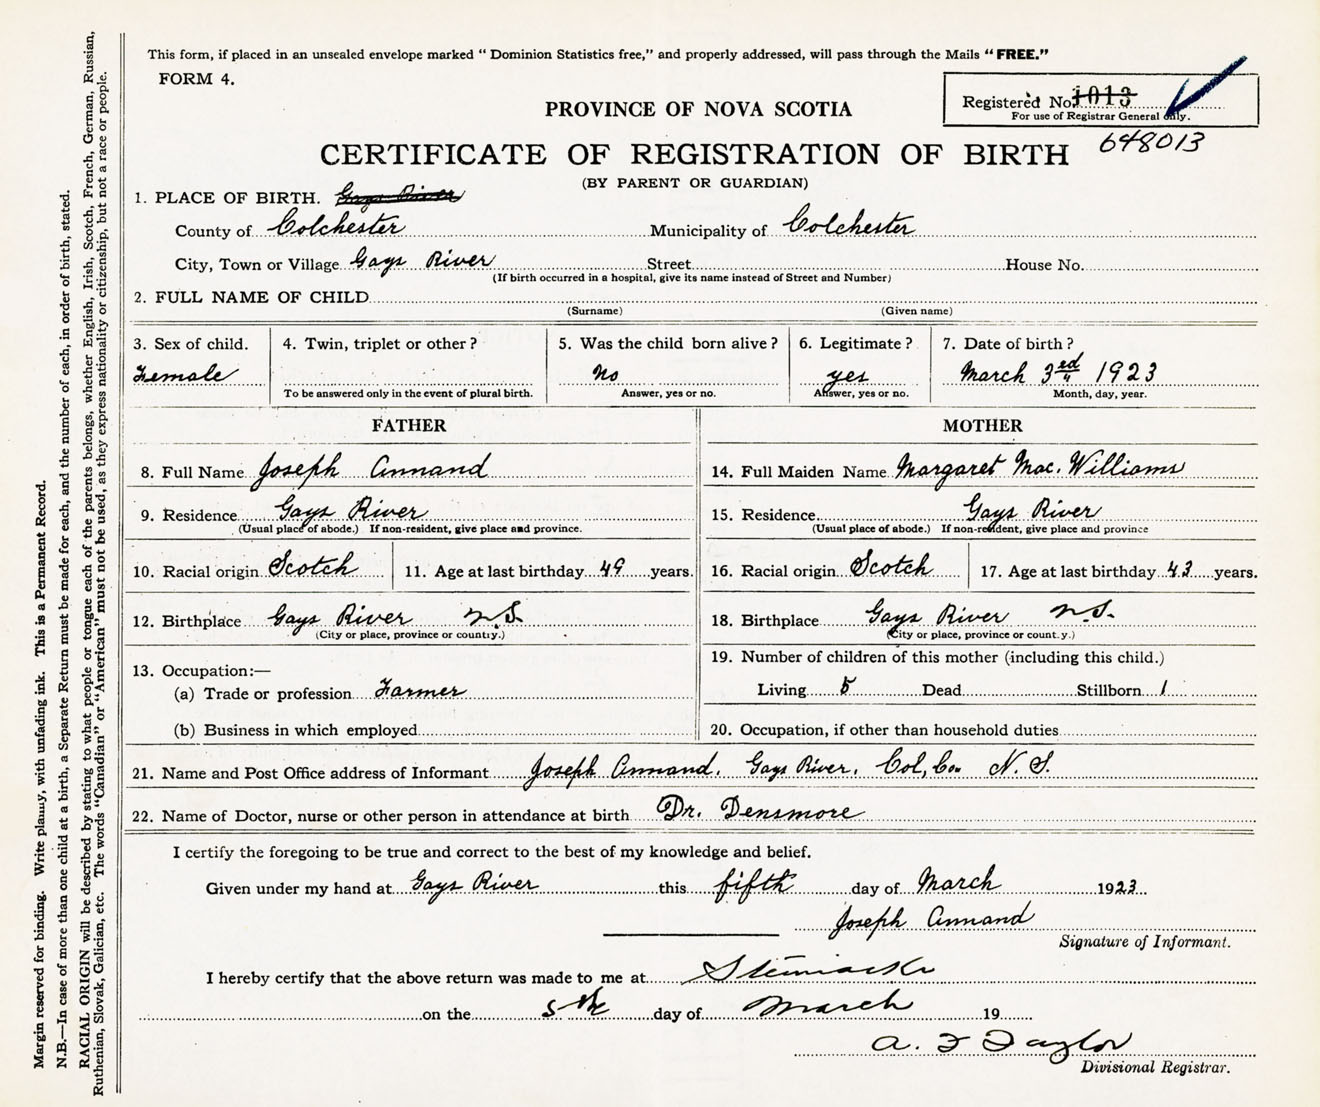 This form, if placed in an unsealed envelope marked “ Dominion Statistics free,” and properly addressed, will pass through the Mails “ FREE.”
FORM 4.
Registered No. 1013
For use of Registrar General only.
648013
PROVINCE OF NOVA SCOTIA
CERTIFICATE OF REGISTRATION OF BIRTH
(BY PARENT OR GUARDIAN)
1. PLACE OF BIRTH. Gays River
County of Colchester Municipality of Colchester
City, Town or Village Gays River Street House No.
(If birth occurred in a hospital, give its name instead of Street and Number)
2. FULL NAME OF CHILD
(Surname) (Given name)
3. Sex of child. 4. Twin, triplet or other? 5. Was the child born alive? 6. Legitimate? 7. Date of birth?
Female No yes March 3rd 1923
To be answered only in the event of plural birth. Answer, yes or no. Answer, yes or no. Month, day, year.
FATHER MOTHER
8. Full Name Joseph Annand 14. Full Maiden Name Margaret Mac. Williams
9. Residence Gays River 15. Residence Gays River
(Usual place of abode.) If non-resident, give place and province. (Usual place of abode.) If non-resident, give place and province
10. Racial origin Scotch 11. Age at last birthday 49 years. 16. Racial origin Scotch 17. Age at last birthday 43 years.
12. Birthplace Gays River N.S. 18. Birthplace Gays River N.S.
(City or place, province or country.) (City or place, province or count.y.)
13. Occupation:— 19. Number of children of this mother (including this child.)
(a) Trade or profession Farmer Living 5 Dead Stillborn 1
(b) Business in which employed 20. Occupation, if other than household duties
21. Name and Post Office address of Informant Joseph Annand, Gays River, Col, Co. N. S.
22. Name of Doctor, nurse or other person in attendance at birth Dr. Densmore
I certify the foregoing to be true and correct to the best of my knowledge and belief.
Given under my hand at Gays River this fifth day of March 1923
Joseph Annand
Signature of Informant.
I hereby certify that the above return was made to me at
on the 5th day of March 19
A. F Taylor
Divisional Registrar.
Margin reserved for binding. Write plainly, with unfading ink. This is a Permanent Record.
N.B.—In case of more than one child at a birth, a Separate Return must be made for each, and the number of each, in order of birth, stated.
RACIAL ORIGIN will be described by stating to what people or tongue each of the parents belongs, whether English, Irish, Scotch, French, German, Russian,
Ruthenian, Slovak, Galician, etc. The words “Canadian” or “American” must not be used, as they express nationality or citizenship, but not a race or people.